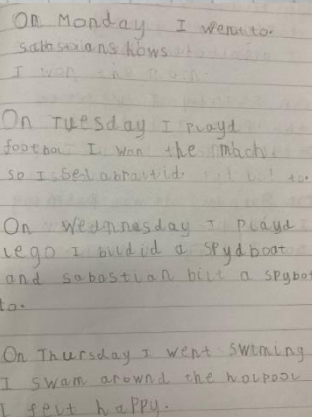 On Monday I went to.
sabastians hows
I won the mach
On Tuesday I Playd
football I won the mach
so I
On Wednnesday I Playd
Lego I bildid a spydboat
and sabastian bilt a spybot
to.
On Thursday I went swiming
I swam arownd the holpool
I felt happy.